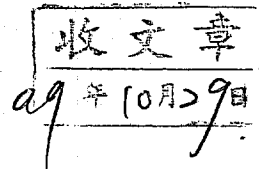 收文章
99年10月29日